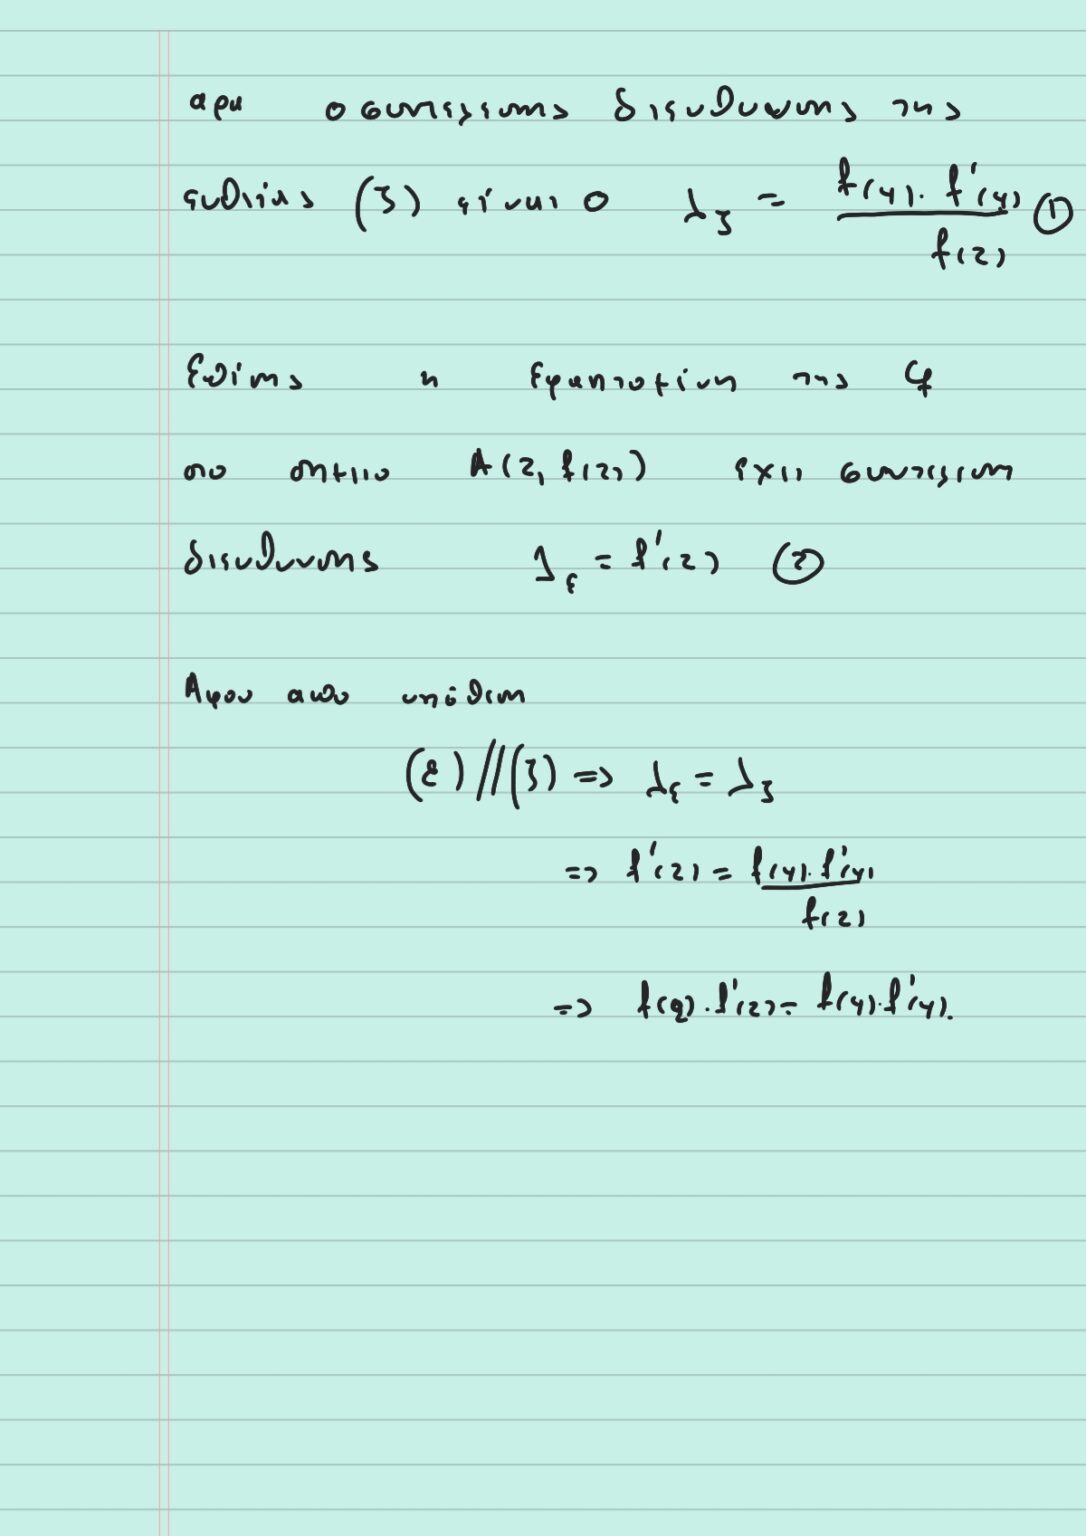 αρα ο συντελεστης διευθυνσης της
ευθειας (ζ) είναι ο λ_ζ = \frac{f(4) \cdot f'(4)}{f(2)} ①
Επίσης η Εφαπτομένη της C_f
στο σημειο A(2, f(2)) έχει συντελεστη
διευθυνσης λ_ε = f'(2) ②
Αφου απο υπόθεση
(ε) // (ζ) => λ_ε = λ_ζ
=> f'(2) = \frac{f(4) \cdot f'(4)}{f(2)}
=> f(2) \cdot f'(2) = f(4) \cdot f'(4).